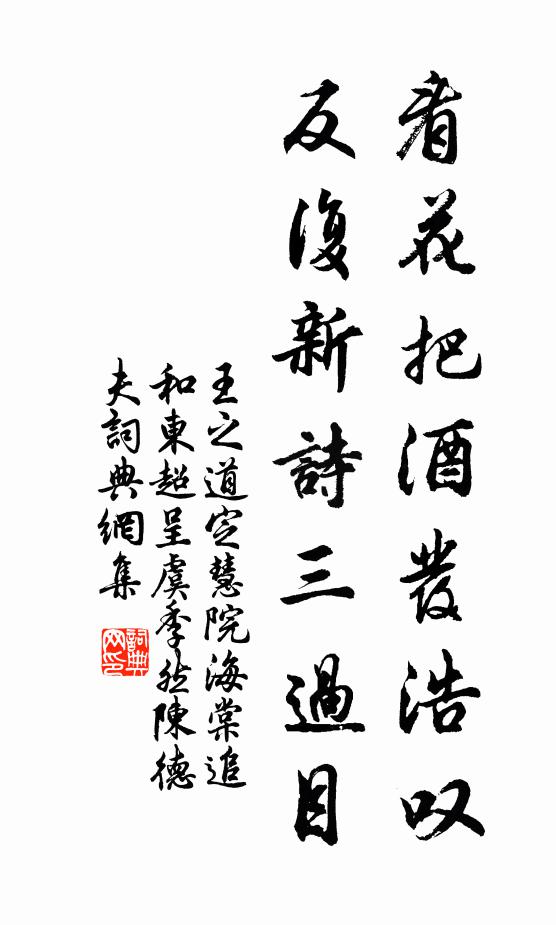 看花把酒發浩叹
反復新詩三過目
王之道定慧院海棠追
和東超呈虞季然陳德
夫詞典網集
詞典网印